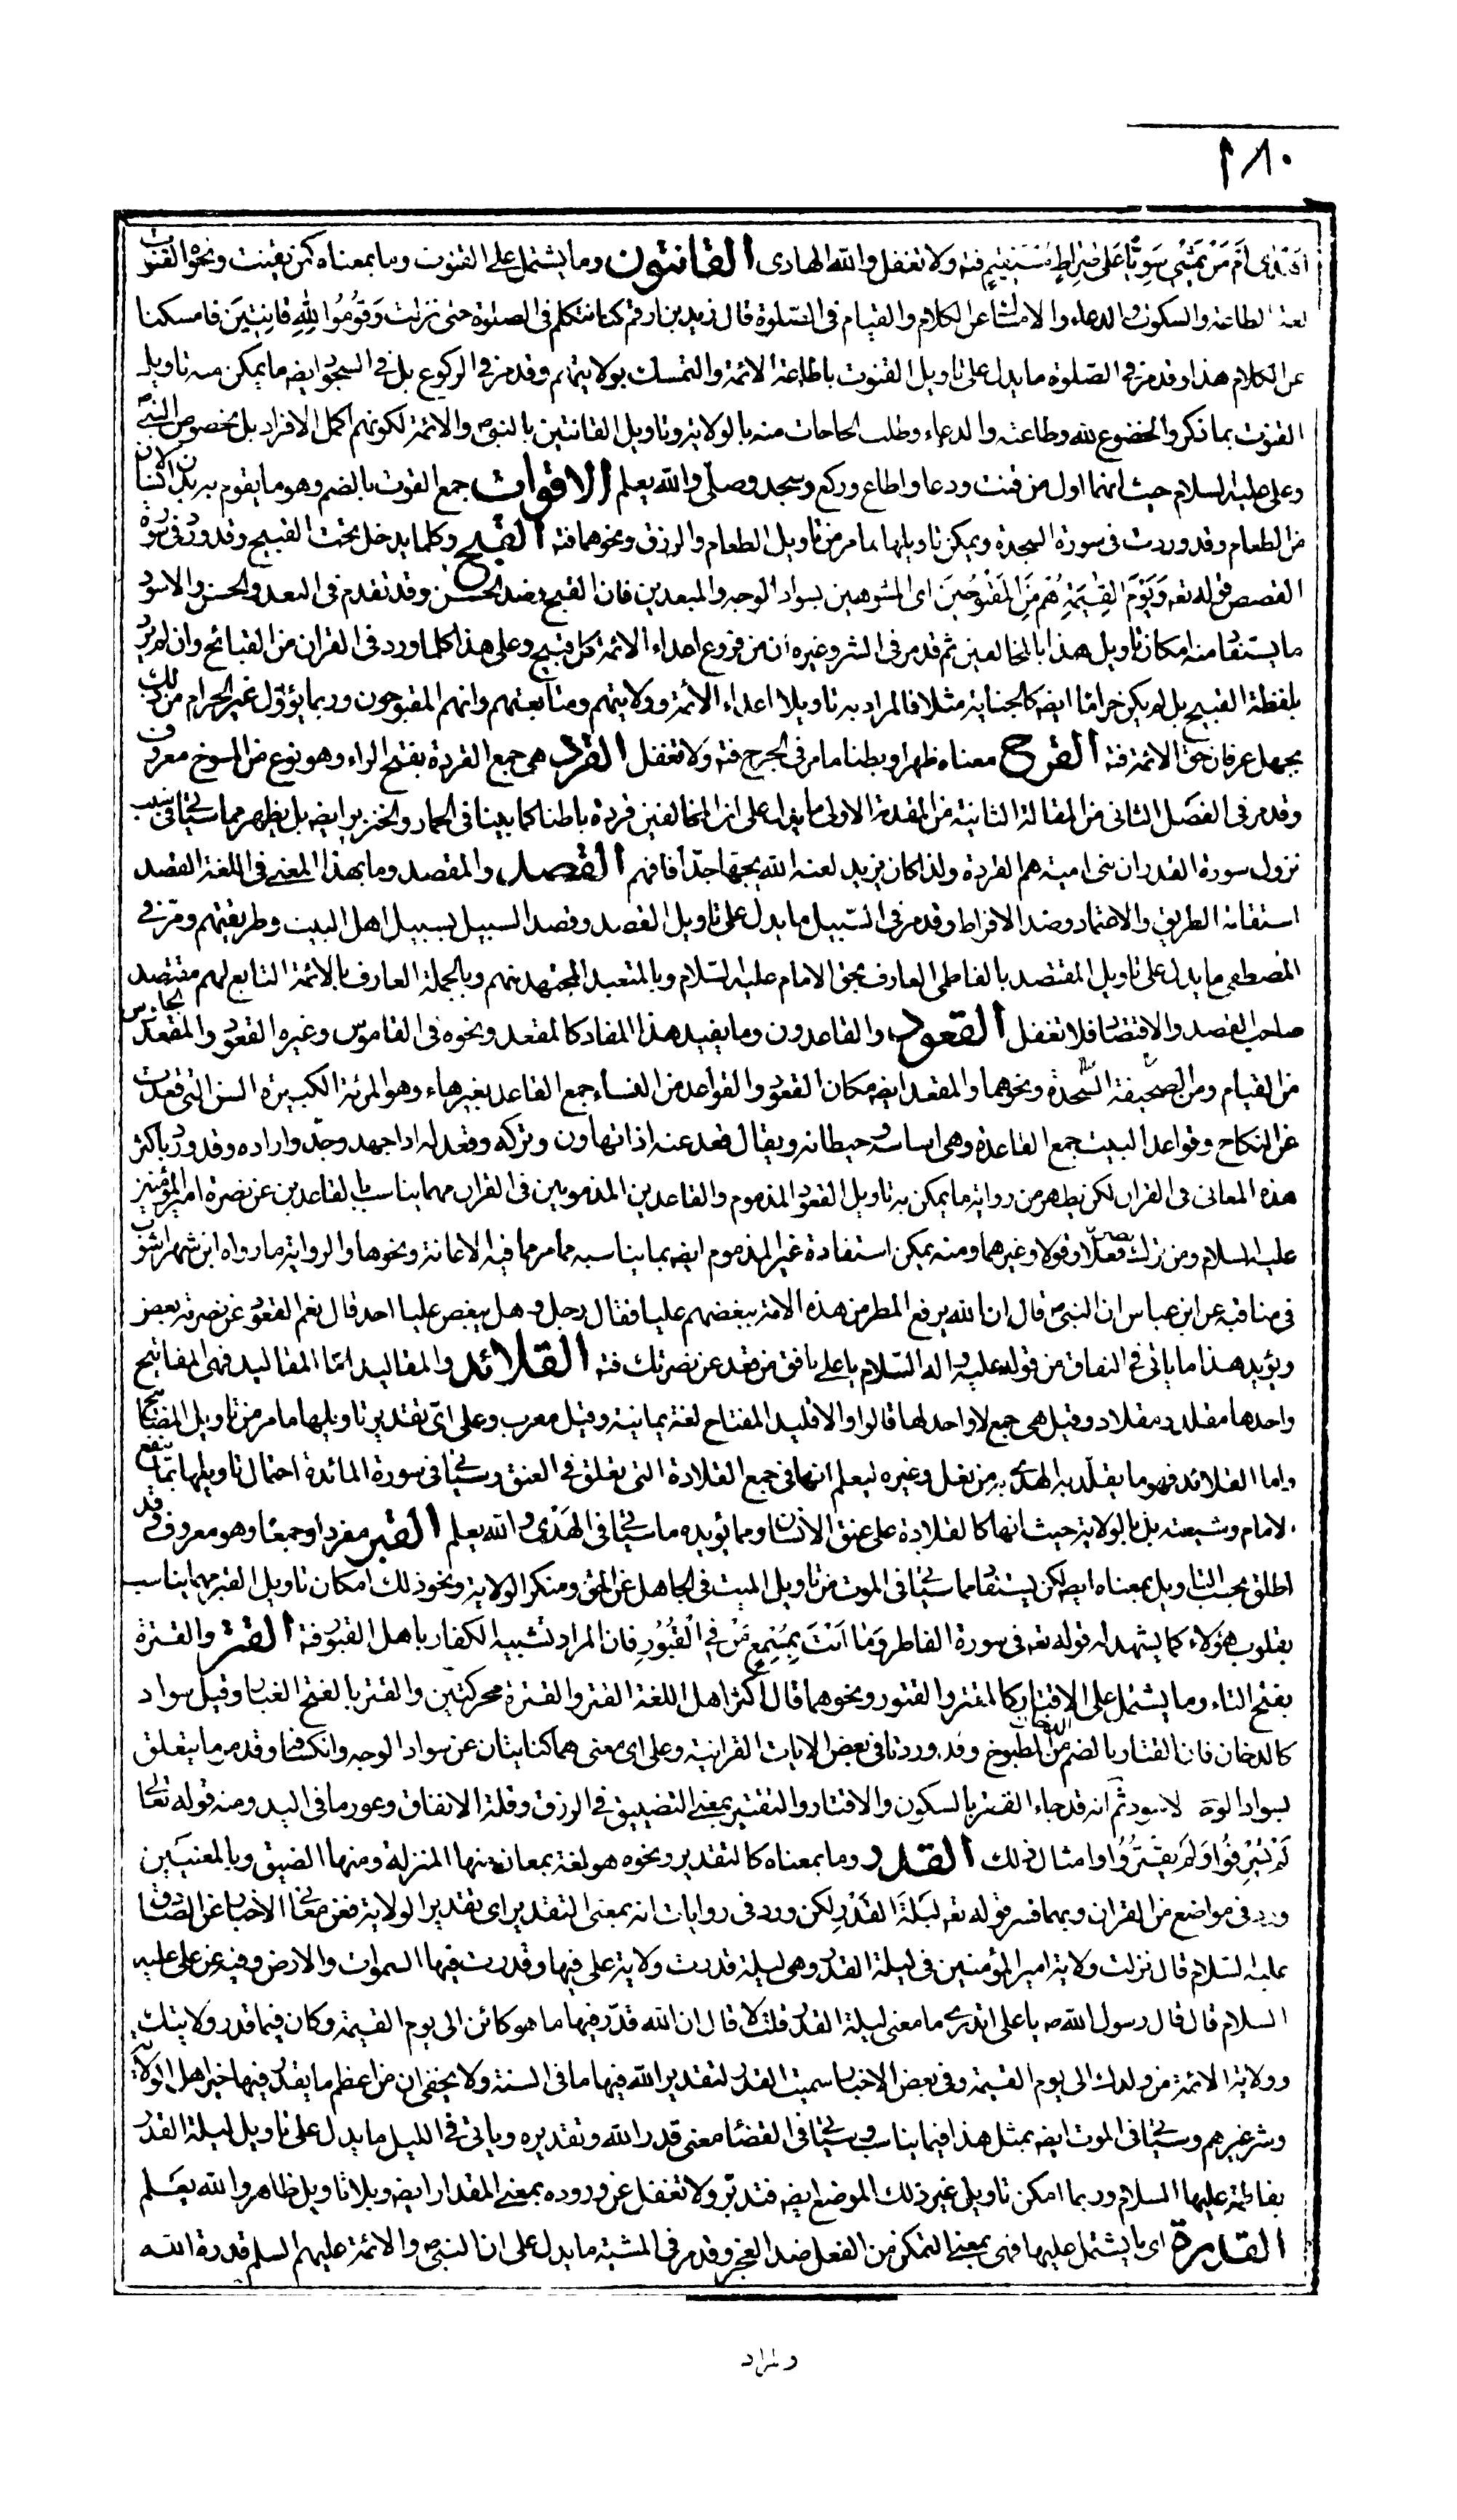 ٢٨٠
اهدى ام من يمشي سويا على صراط مستقيم فته ولا تغفل والله الهادى القانتون وما يشتمل على القنوت وما بمعناه كمن يقنت ونحوه القنوت
لغة الطاعة والسكون والدعاء والامساك عن الكلام والقيام فى الصلوة قال زيد بن ارقم كنا نتكلم فى الصلوة حتى نزلت وَقُومُوا لِلّٰهِ قانِتِينَ فامسكنا
عن الكلام هذا وقد مر فى الصّلوة ما يدل على تاويل القنوت باطاعة الائمة والتمسك بولايتهم وقد مر فى الركوع بل فى السجود ايضه ما يمكن منه تاويل
القنوت بما ذكر والخضوع لله وطاعته والدعاء وطلب الحاجات منه بالولاية وتاويل القانتين بالنبى ص والائمة لكونهم اكمل الافراد بل بخصوص النبى ص
وعلى عليه السلام حيث انهما اول من قنت ودعا واطاع وركع وسجد وصلى والله يعلم الاقوات جمع القوت بالضم وهو ما يقوم به بدن الانسان
من الطعام وقد وردت فى سورة السجدة ويمكن تاويلها بما مر من تاويل الطعام والرزق ونحوهما فته القبيح وكلما يدخل تحت القبيح وقد ورد فى سورة
القصص قوله تعه وَيَوْمَ القِيٰمَةِ هُمْ مِنَ المَقْبُوحِينَ اى المشوهين بسواد الوجه والمبعدين فان القبيح ضد الحسن وقد تقدم فى البعد والحسن والاسود
ما يستفاد منه امكان تاويل هذا بالمخالفين ثم قد مر فى الشر وغيره ان من فروع اعداء الائمة كل قبيح وعلى هذا كلما ورد فى القران من القبائح وان لم يرد
بلفظة القبيح بل لم يكن حرامًا ايضه كالجناية مثلا فالمراد به تاويلا اعداء الائمة وولايتهم ومتابعتهم وانهم المقبوحون وربما يؤول غير الحرام من ذلك
بجهل عرفان حق الائمة فته القرح معناه ظهرا وبطنا ما مر فى الجرح فته ولا تغفل القرد هى جمع القردة بفتح الراء وهو نوع من المسوخ معروف
وقد مر فى الفصل الثانى من المقالة الثانية من المقدمة الاولى ما يدل على ان المخالفين قردة باطنا كما بينا فى الحمار والخنزير ايضه بل يظهر مما سيأتى فى سبب
نزول سورة القدر ان بنى امية هم القردة ولذا كان يزيد لعنه الله يحبّها جدّا فافهم القصد والمقصد وما بهذا المعنى فى اللغة القصد
استقامة الطريق والاعتماد وضد الافراط وقد مر فى السّبيل ما يدل على تاويل القصد وقصد السبيل بسبيل اهل البيت وطريقتهم ومرّ فى
المصطفى ما يدل على تاويل المقتصد بالفاطمى العارف بحق الامام عليه السّلام وبالمتعبد المجتهد منهم وبالجملة العارف بالائمة التابع لهم مقتصد
صاحب القصد والاقتصاد فلا تغفل القعود والقاعدون وما يفيد هذا المفاد كالمقعد ونحوه فى القاموس وغيره القعود والمقعد الجلوس
من القيام ومن الصحيفة السّجدة ونحوهما والمقعد ايضه مكان القعود والقواعد من النساء جمع القاعد بغير هاء وهو المرئة الكبيرة السن التى قعدت
عن النكاح وقواعد البيت جمع القاعدة وهى اساس حيطانه ويقال قعد عنه اذا تهاون وتركه وقعد له اذا جهد وجدّ واراده وقد ورد باكثر
هذه المعانى فى القران لكن يظهر من رواية ما يمكن به تاويل القعود المذموم والقاعدين المذمومين فى القران مهما يناسب بالقاعدين عن نصرة امير المؤمنين
عليه السلام ومن ترك نصرته فعلا وقولا وغيرهما ومنه يمكن استفادة غير المذموم ايضه بما يناسبه مما مر مما فيه الاعانة ونحوها والرواية ما رواه ابن شهراشوب
فى مناقبه عن ابن عباس ان النبى ص قال ان الله يرفع المطر من هذه الامة ببغضهم عليا فقال رجل وهل يبغض عليا احد قال نعم القعود عن نصرته بعض
ويؤيد هذا ما ياتى فى النفاق من قوله عليه واله السّلام يا على نافق من قعد عن نصرتك فته القلائد والمقاليد امّا المقاليد فهى المفاتيح
واحدها مقلد ومقلاد وقيل هى جمع لا واحد لها قالوا والاقليد المفتاح لغة يمانية وقيل معرب وعلى اىّ تقدير تاويلها ما مر من تاويل المفتاح
واما القلائد فهو ما يقلّد به الهدى من نعل وغيره ليعلم انها هى جمع القلادة التى تعلق فى العنق وسيأتى فى سورة المائدة احتمال تاويلها بما ينفع
الامام وشيعته بل بالولاية حيث انها كالقلادة على عنق الانسان ومما يؤيده ما سيأتى فى الهَدْى والله يعلم القبر مفردا وجمعًا وهو معروف وقد
اطلق بحسب التاويل بمعناه ايضه لكن يستفاد مما سيأتى فى الموت من تاويل الميت فى الجاهل عن الحق ومنكر الولاية ونحو ذلك امكان تاويل القبر مهما يناسب
بقلوب هؤلاء كما يشهد له قوله تعه فى سورة الفاطر وَمٰا اَنْتَ بِمُسْمِعٍ مَنْ فِى الْقُبُورِ فان المراد تشبيه الكفار باهل القبور فته القتر والقترة
بفتح التاء وما يشتمل على الاقتار كالمقتر والقتور ونحوهما قال اكثر اهل اللغة القتر والقترة محركتين والقتر بالفتح الغبار وقيل سواد
كالدخان فان القتار بالضم الدخان من المطبوخ وقد وردتا فى بعض الايات القرانية وعلى اى معنى هما كنايتان عن سواد الوجه وانكسافه وقد مر ما يتعلق
بسواد الوجه ثم انه قد جاء القتر بالسكون والاقتار والتقتير بمعنى التضييق فى الرزق وقلة الانفاق وعور ما فى اليد ومنه قوله تعالى
لَمْ يُسْرِفُوا وَلَمْ يَقْتُرُوا وامثال ذلك القدر وما بمعناه كالتقدير ونحوه هو لغة بمعان منها المنزلة ومنها الضيق وبالمعنيين
ورد فى مواضع من القران وبهما فسر قوله تعه لَيْلَةُ القَدْرِ لكن ورد فى روايات انه بمعنى التقدير اى تقدير الولاية فعن معانى الاخبار عن الصادق
عليه السّلام قال نزلت ولاية امير المؤمنين فى ليلة القدر وهى ليلة قدرت ولاية على فيها وقدرت فيها السموات والارض وفيه عن على عليه
السلام قال قال رسول الله ص يا على اتدرى ما معنى ليلة القدر قلت لا قال ان الله قدّر فيها ما هو كائن الى يوم القيمة وكان فيما قدر ولايتك
وولاية الائمة من ولدك الى يوم القيمة وفى بعض الاخبار سميت القدر لتقدير الله فيها ما فى السنة ولا يخفى ان من اعظم ما يقدر فيها خير اهل الولاية
وشر غيرهم وسيأتى فى الموت ايضه بمثل هذا فيما يناسب وسيأتى فى القضاء معنى قدر الله وتقديره وياتى فى الليل ما يدل على تاويل ليلة القدر
بفاطمة عليها السلام وربما امكن تاويل غير ذلك الموضع ايضه فتدبّر ولا تغفل عن وروده بمعنى المقدار ايضه وبلا تاويل ظاهر والله يعلم
القدرة اى ما يشتمل عليها فهى بمعنى التمكن من الفعل ضد العجز وقد مر فى المشية ما يدل على ان النبى ص والائمة عليهم السلم قدرة الله
والمراد